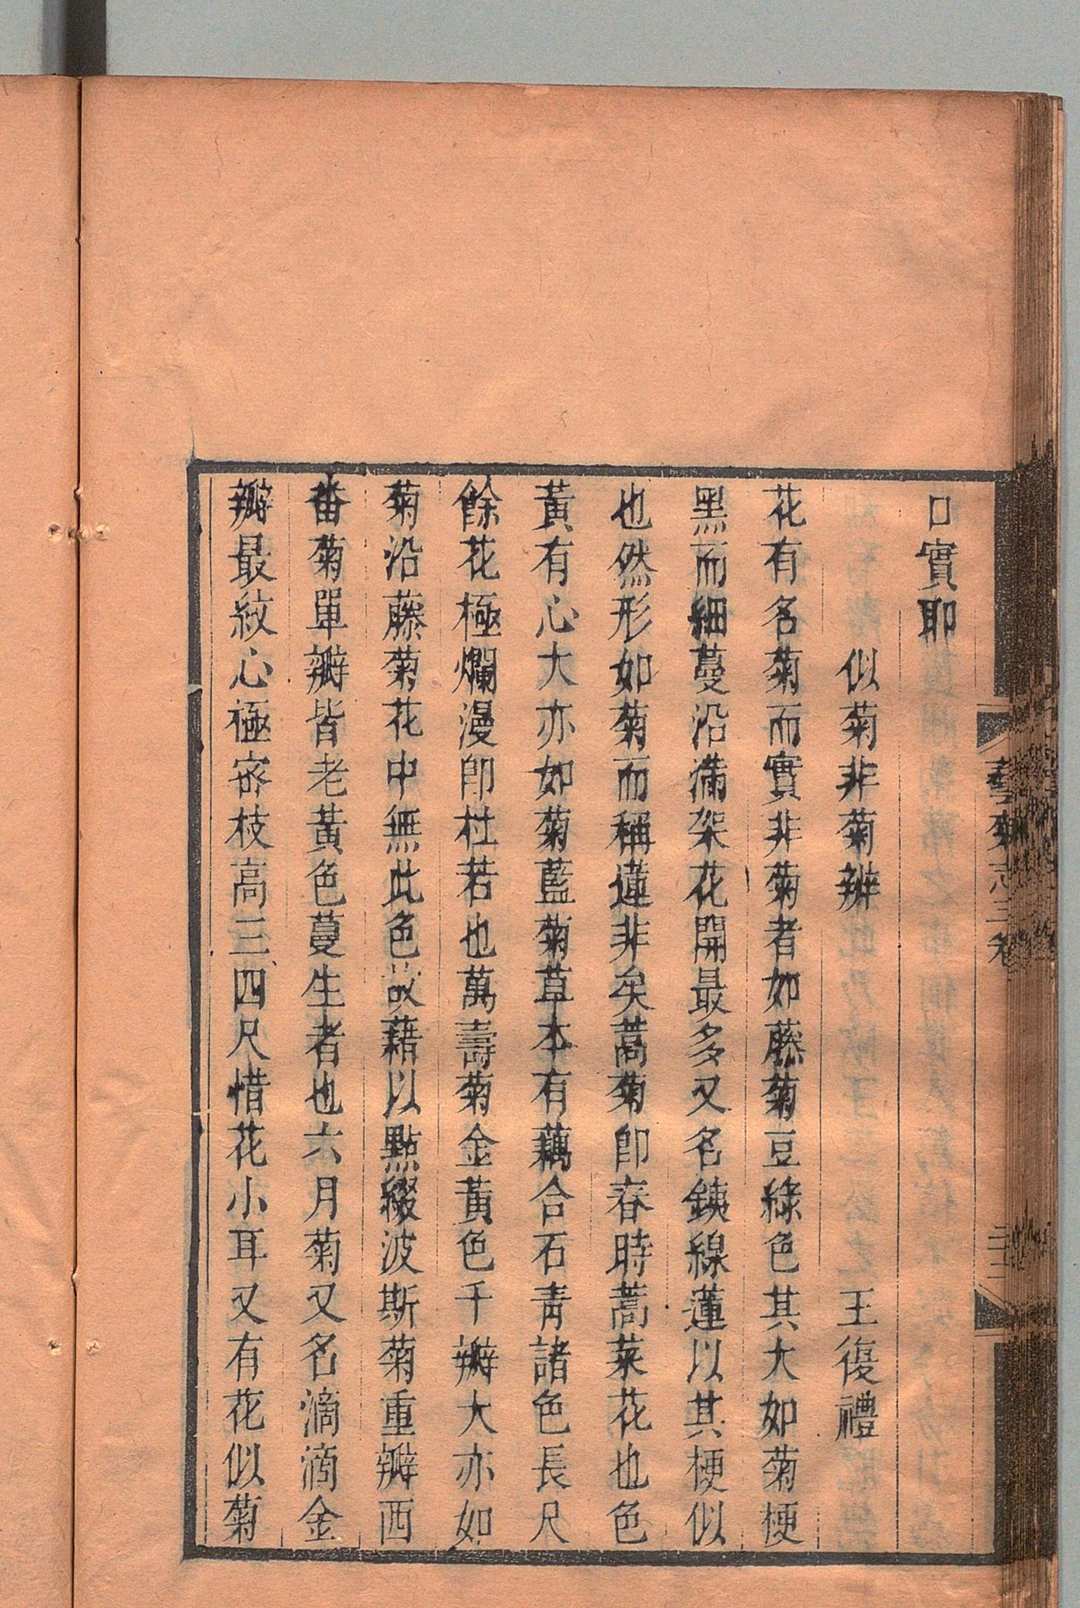 口實耶
似菊非菊辨　王復禮
花有名菊而實非菊者如藤菊豆綠色其大如菊梗
黑而細蔓沿滿架花開最多又名鐵線蓮以其梗似
也然形如菊而稱蓮非矣蒿菊卽春時蒿菜花也色
黃有心大亦如菊藍菊草本有藕合石靑諸色長尺
餘花極爛漫卽杜若也萬壽菊金黃色千瓣大亦如
菊沿藤菊花中無此色故藉以點綴波斯菊重瓣西
番菊單瓣皆老黃色蔓生者也六月菊又名滴滴金
瓣最紋心極密枝高三四尺惜花小耳又有花似菊
藝菊志三卷